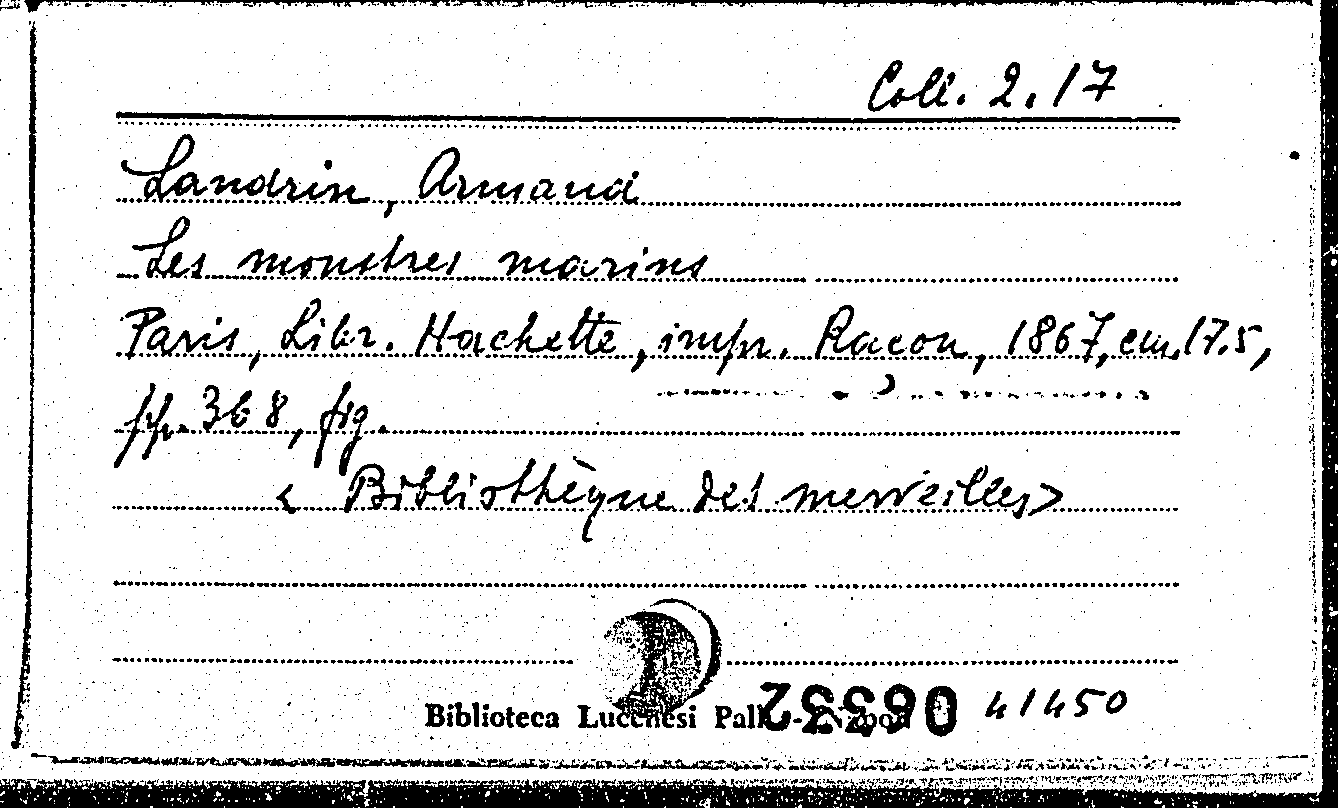 Coll. 2.17
Landrin, Armand
Les monstres marins
Paris, Libr. Hachette, impr. Raçon, 1867, cm. 17.5,
pp. 368, fig.
< Bibliothèque des merveilles>
Biblioteca Lucchesi Palli - Napoli
41450